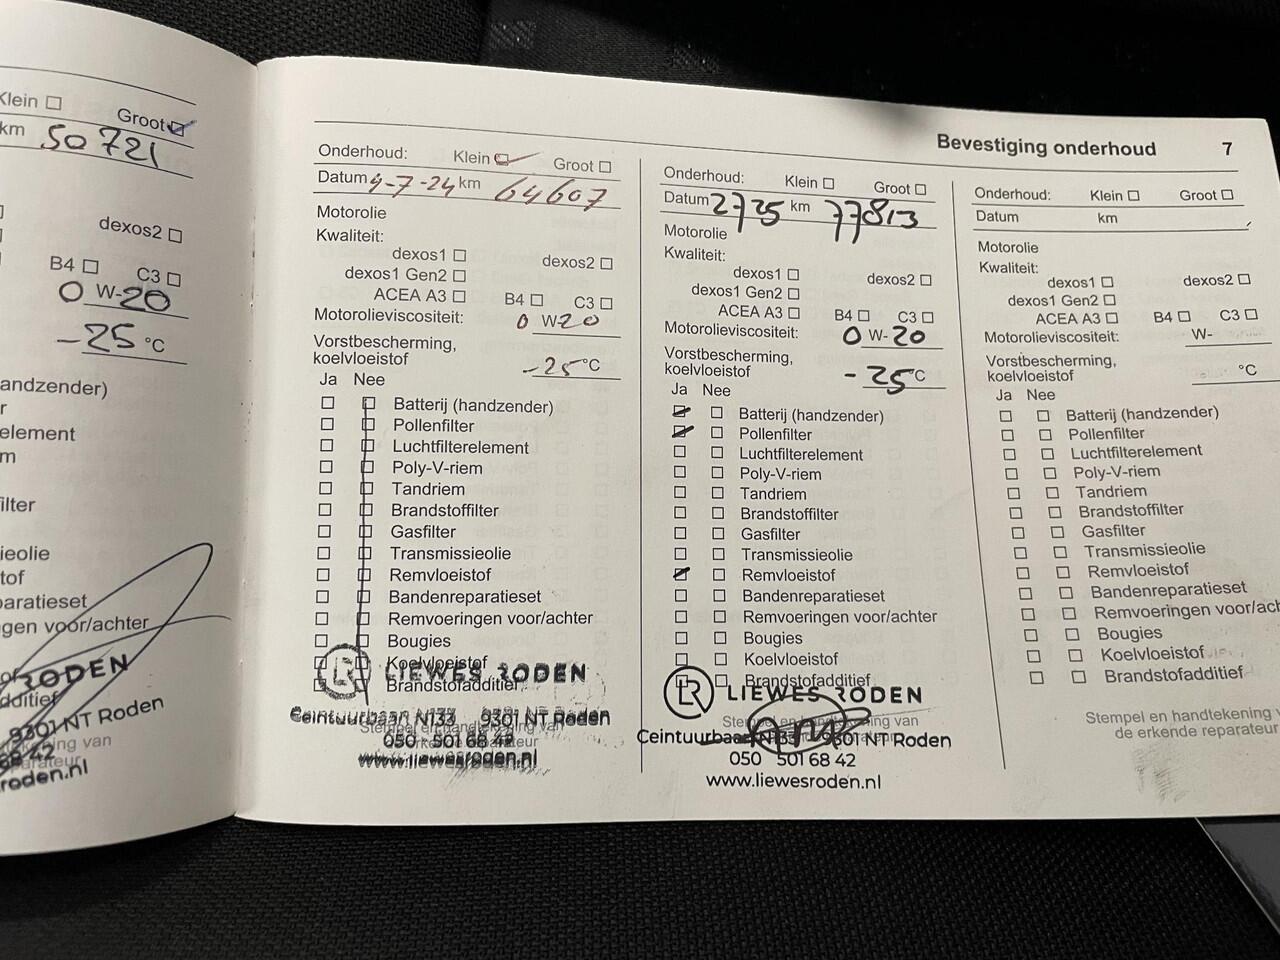 Klein ☐ Groot ☑
km 50721
dexos2 ☐
B4 ☐ C3 ☐
0 W-20
-25 °C
andzender)
element
ilter
ieolie
tof
paratieset
gen voor/achter
RODEN
dditief
9301 NT Roden
roden.nl
Bevestiging onderhoud 7
Onderhoud: Klein ☑ Groot ☐
Datum 9-7-24 km 64607
Motorolie
Kwaliteit:
dexos1 ☐ dexos2 ☐
dexos1 Gen2 ☐
ACEA A3 ☐ B4 ☐ C3 ☐
Motorolieviscositeit: 0 W-20
Vorstbescherming,
koelvloeistof -25 °C
Ja Nee
☐ ☐ Batterij (handzender)
☐ ☐ Pollenfilter
☐ ☐ Luchtfilterelement
☐ ☐ Poly-V-riem
☐ ☐ Tandriem
☐ ☐ Brandstoffilter
☐ ☐ Gasfilter
☐ ☐ Transmissieolie
☐ ☐ Remvloeistof
☐ ☐ Bandenreparatieset
☐ ☐ Remvoeringen voor/achter
☐ ☐ Bougies
☐ ☐ Koelvloeistof
☐ ☐ Brandstofadditief
LR LIEWES RODEN
Ceintuurbaan N133 9301 NT Roden
Stempel en handtekening van
050 - 501 68 42
www.liewesroden.nl
Onderhoud: Klein ☐ Groot ☐
Datum 2725 km 77813
Motorolie
Kwaliteit:
dexos1 ☐ dexos2 ☐
dexos1 Gen2 ☐
ACEA A3 ☐ B4 ☐ C3 ☐
Motorolieviscositeit: 0 W-20
Vorstbescherming,
koelvloeistof -25 °C
Ja Nee
☑ ☐ Batterij (handzender)
☑ ☐ Pollenfilter
☐ ☐ Luchtfilterelement
☐ ☐ Poly-V-riem
☐ ☐ Tandriem
☐ ☐ Brandstoffilter
☐ ☐ Gasfilter
☐ ☐ Transmissieolie
☑ ☐ Remvloeistof
☐ ☐ Bandenreparatieset
☐ ☐ Remvoeringen voor/achter
☐ ☐ Bougies
☐ ☐ Koelvloeistof
☐ ☐ Brandstofadditief
LR LIEWES RODEN
Stempel en handtekening van
Ceintuurbaan N133 9301 NT Roden
050 501 68 42
www.liewesroden.nl
Onderhoud: Klein ☐ Groot ☐
Datum km
Motorolie
Kwaliteit:
dexos1 ☐ dexos2 ☐
dexos1 Gen2 ☐
ACEA A3 ☐ B4 ☐ C3 ☐
Motorolieviscositeit: W-
Vorstbescherming,
koelvloeistof °C
Ja Nee
☐ ☐ Batterij (handzender)
☐ ☐ Pollenfilter
☐ ☐ Luchtfilterelement
☐ ☐ Poly-V-riem
☐ ☐ Tandriem
☐ ☐ Brandstoffilter
☐ ☐ Gasfilter
☐ ☐ Transmissieolie
☐ ☐ Remvloeistof
☐ ☐ Bandenreparatieset
☐ ☐ Remvoeringen voor/ach
☐ ☐ Bougies
☐ ☐ Koelvloeistof
☐ ☐ Brandstofadditief
Stempel en handtekening v
de erkende reparateur